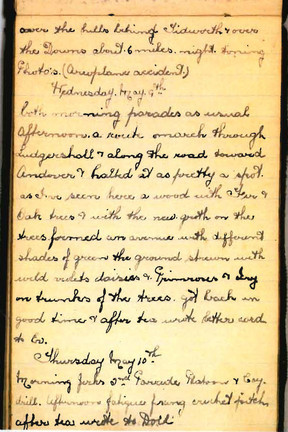 over the hills behind Tidworth & over
the Downs about 6 miles. night. toning
Photo's. (Aeroplane accident.)
Wednesday. May. 9th
both morning parades as usual
afternoon. a route march through
Ludgershall & along the road toward
Andover & halted at as pretty a spot
as I've seen here a wood with Fir &
Oak trees & with the new groth on the
trees formed an avenue with different
shades of green the ground strewn with
wild violets daisies & Primroses & Ivy
on trunks of the trees. got back in
good time & after tea wrote letter card
to
Thursday May 10th
Morning Jerks 2nd Parade, Platoon & Coy.
drill. Afternoon fatigue fixing cricket pitch
after tea wrote to Doll